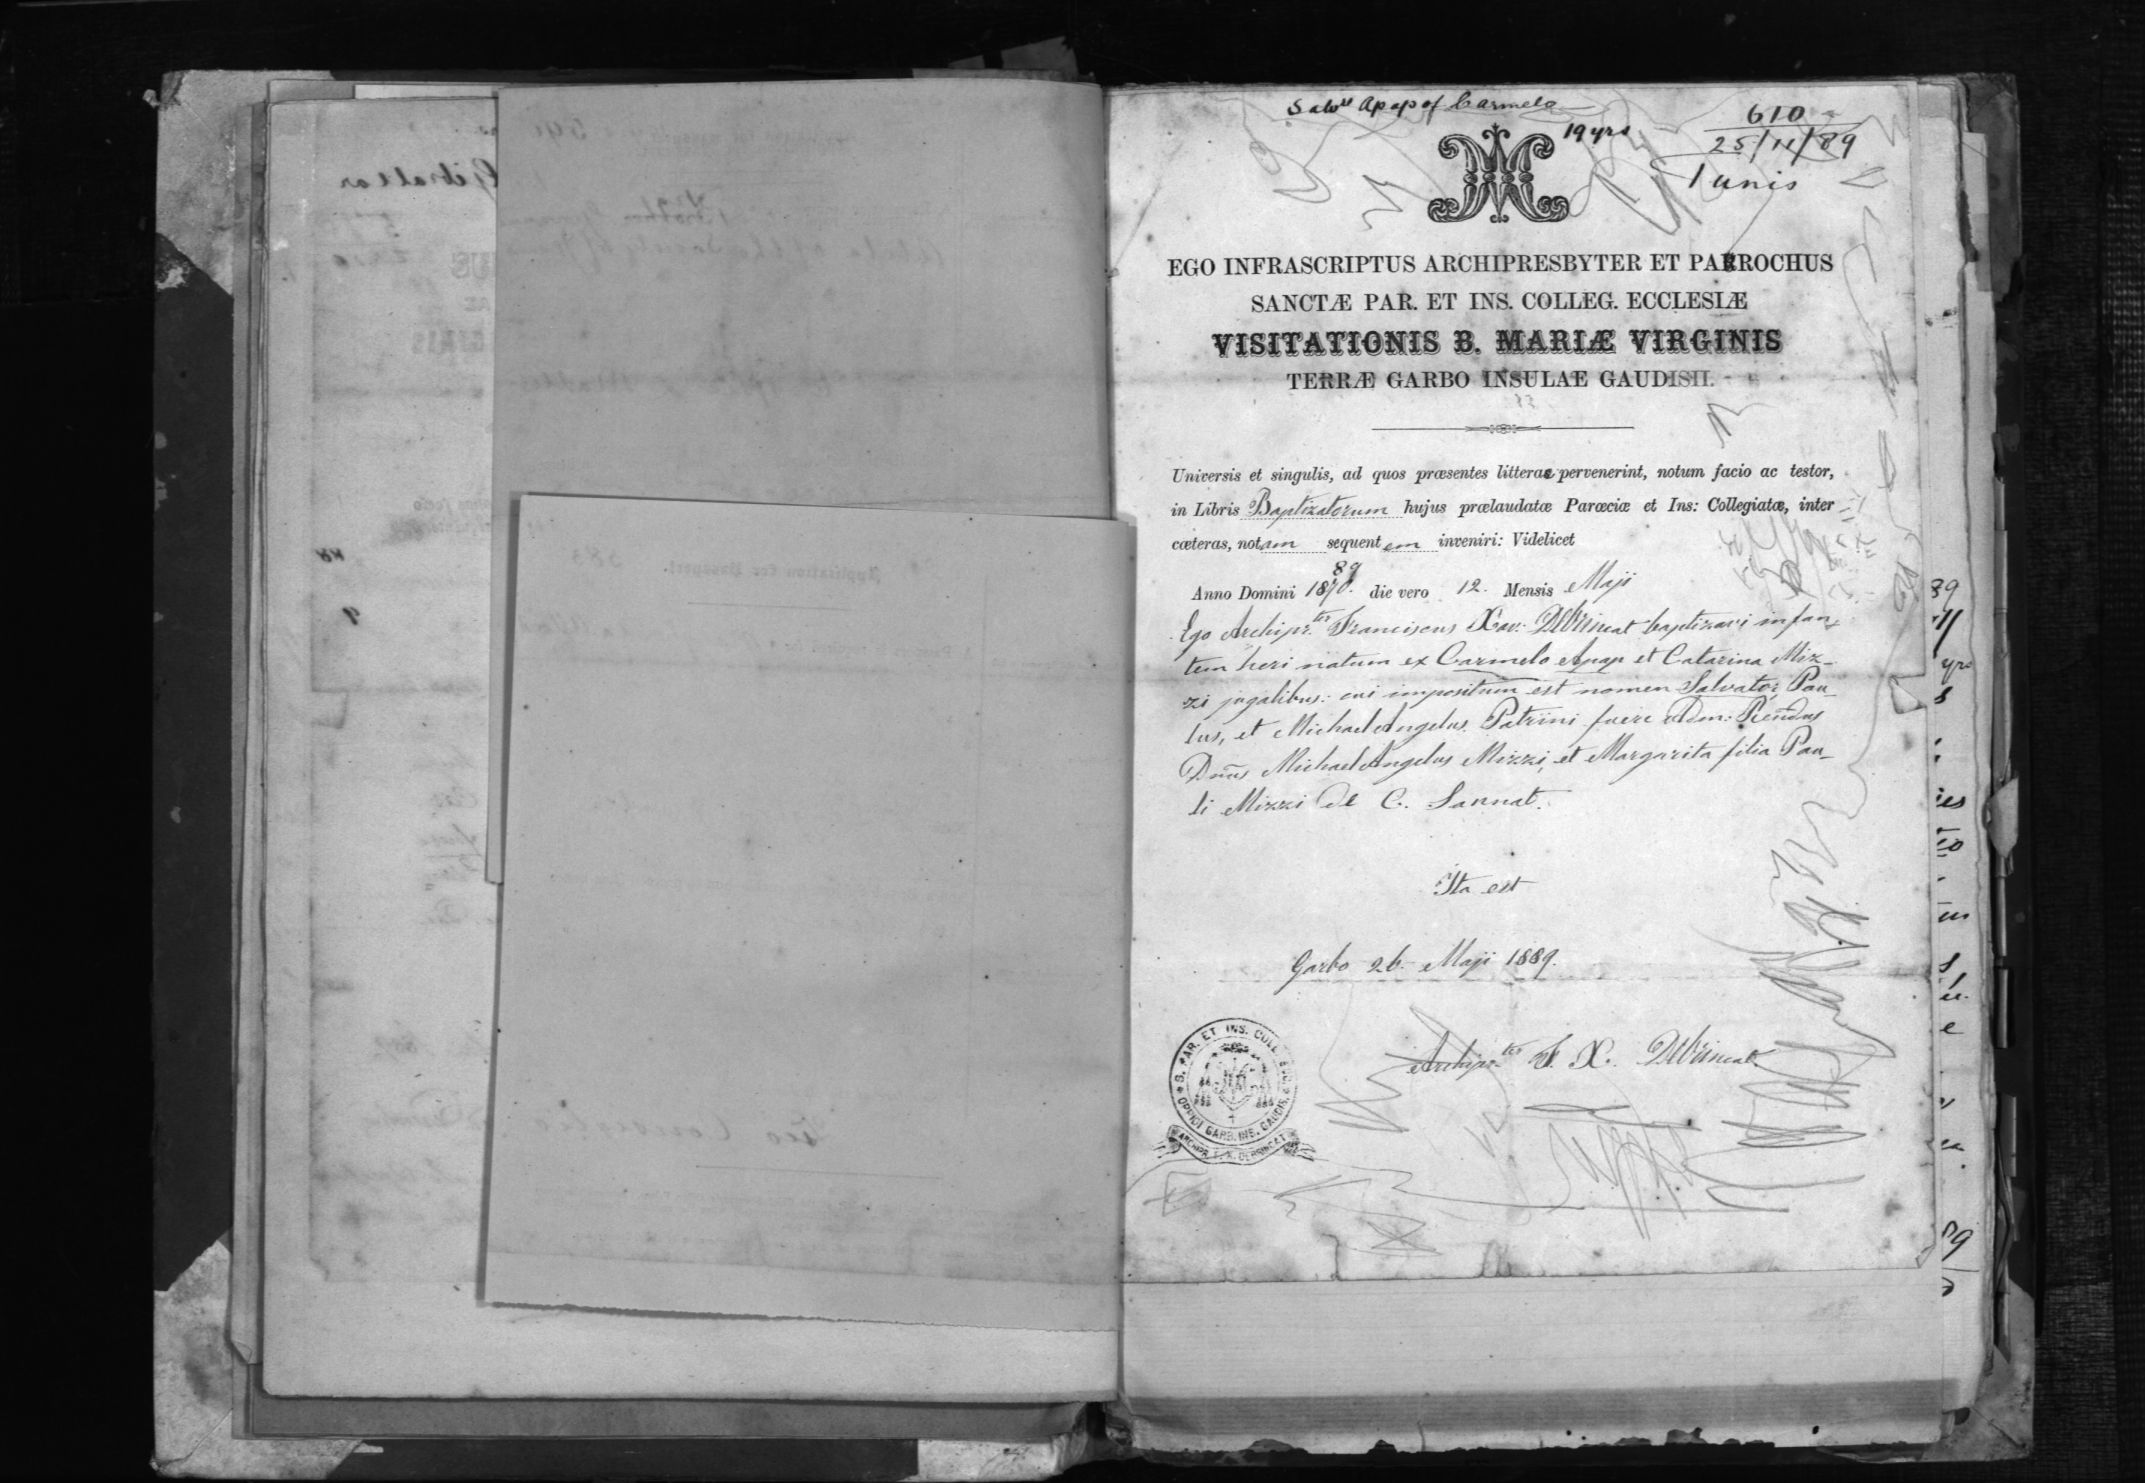 Gibraltar
Salv.re Apap of Carmelo
19 yrs
610
25/11/89
Tunis
EGO INFRASCRIPTUS ARCHIPRESBYTER ET PARROCHUS
SANCTÆ PAR. ET INS. COLLEG. ECCLESIÆ
VISITATIONIS B. MARIÆ VIRGINIS
TERRÆ GARBO INSULAE GAUDISII.
Universis et singulis, ad quos præsentes litterae pervenerint, notum facio ac testor,
in Libris Baptizatorum hujus prælaudatæ Parœciæ et Ins: Collegiatæ, inter
cæteras, notam sequentem inveniri: Videlicet
89
Anno Domini 1870. die vero 12. Mensis Maji
Ego Archipr.ter Franciscus Xav: Debrincat baptizavi infan-
tem heri natum ex Carmelo Apap et Catarina Miz-
zi jugalibus: cui impositum est nomen Salvator, Pau-
lus, et Michael Angelus. Patrini fuere Adm: Rendus
Dnus Michael Angelus Mizzi, et Margarita filia Pau-
li Mizzi de C. Sannat.
Ita est
Garbo 26. Maji 1889.
Archipr.ter F. X. Debrincat.
S. PAR. ET INS. COLLEG.
OPPIDI GARB. INS. GAUDIS.
ARCHIPR. F. X. DEBRINCAT